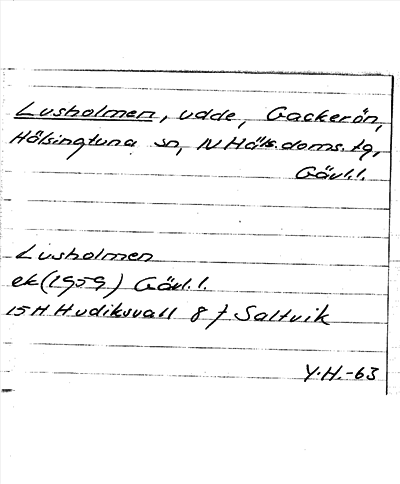 Lusholmen, udde, Gackerön,
Hälsingtuna sn, N Häls. doms. tg,
Gävl.l.
Lusholmen
ek (1959) Gävl.l.
15H Hudiksvall 8 f Saltvik
Y.H.-63